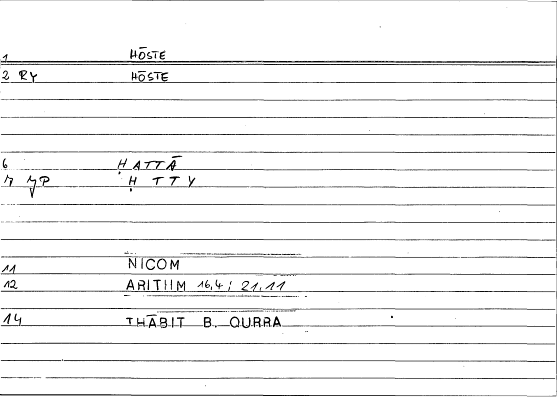 1 HŌSTE
2 RY HŌSTE
6 ḤATTĀ
7 JP Ḥ T T Y
11 NICOM
12 ARITIIM 16,4; 21,11
14 THĀBIT B. QURRA